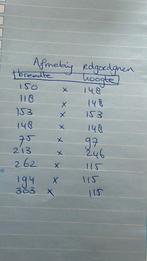 Afmeting rolgordijnen
breedte hoogte
150 x 148
118 x 148
153 x 153
148 x 148
75 x 97
213 x 246
262 x 115
194 x 115
303 x 115